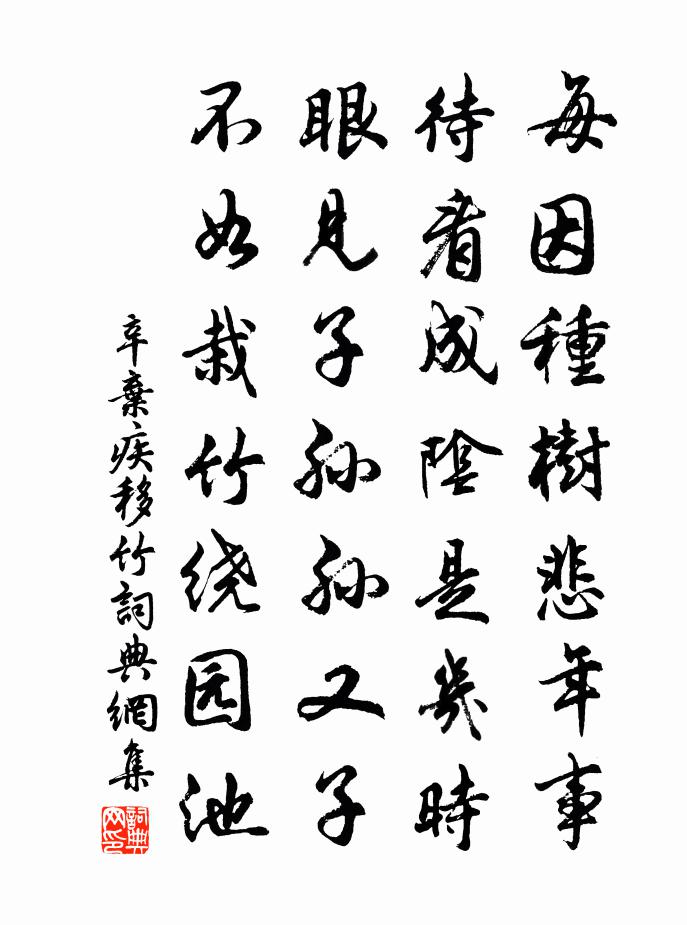 每因種樹悲年事
待看成陰是幾時
眼見子孙孙又子
不如栽竹绕园池
辛棄疾移竹詞典網集
詞典网印